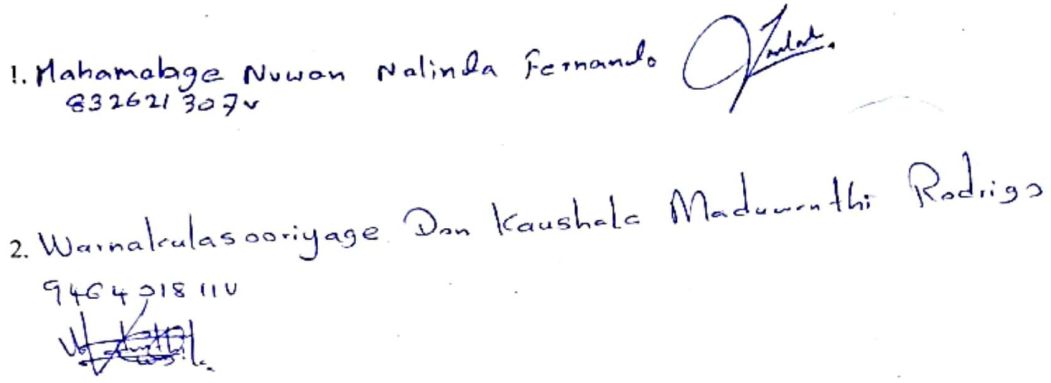 1. Mahamalage Nuwan Nalinda Fernando
832621307v
2. Warnakulasooriyage Don Kaushala Maduwanthi Rodrigo